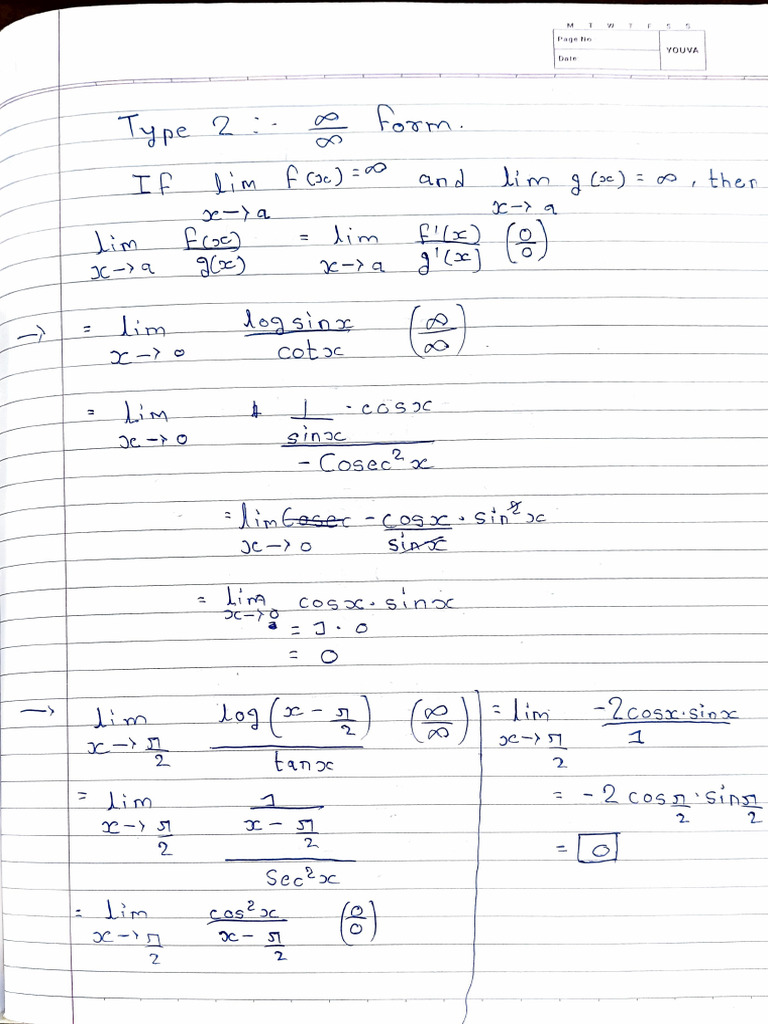 M T W T F S S
Page No
YOUVA
Date
Type 2 :- ∞/∞ form.
If lim x→a f(x) = ∞ and lim x→a g(x) = ∞, then
lim x→a f(x)/g(x) = lim x→a f'(x)/g'(x) (0/0)
→ = lim x→0 log sinx / cotx (∞/∞)
= lim x→0 1/sinx · cosx / -Cosec²x
= lim x→0 - cosx/sinx · sin²x
= lim x→0 cosx · sinx
= 1 · 0
= 0
→ lim x→π/2 log(x - π/2) / tanx (∞/∞)
= lim x→π/2 1/(x - π/2) / Sec²x
= lim x→π/2 cos²x / x - π/2 (0/0)
= lim x→π/2 -2cosx·sinx / 1
= -2 cos π/2 · sin π/2
= 0